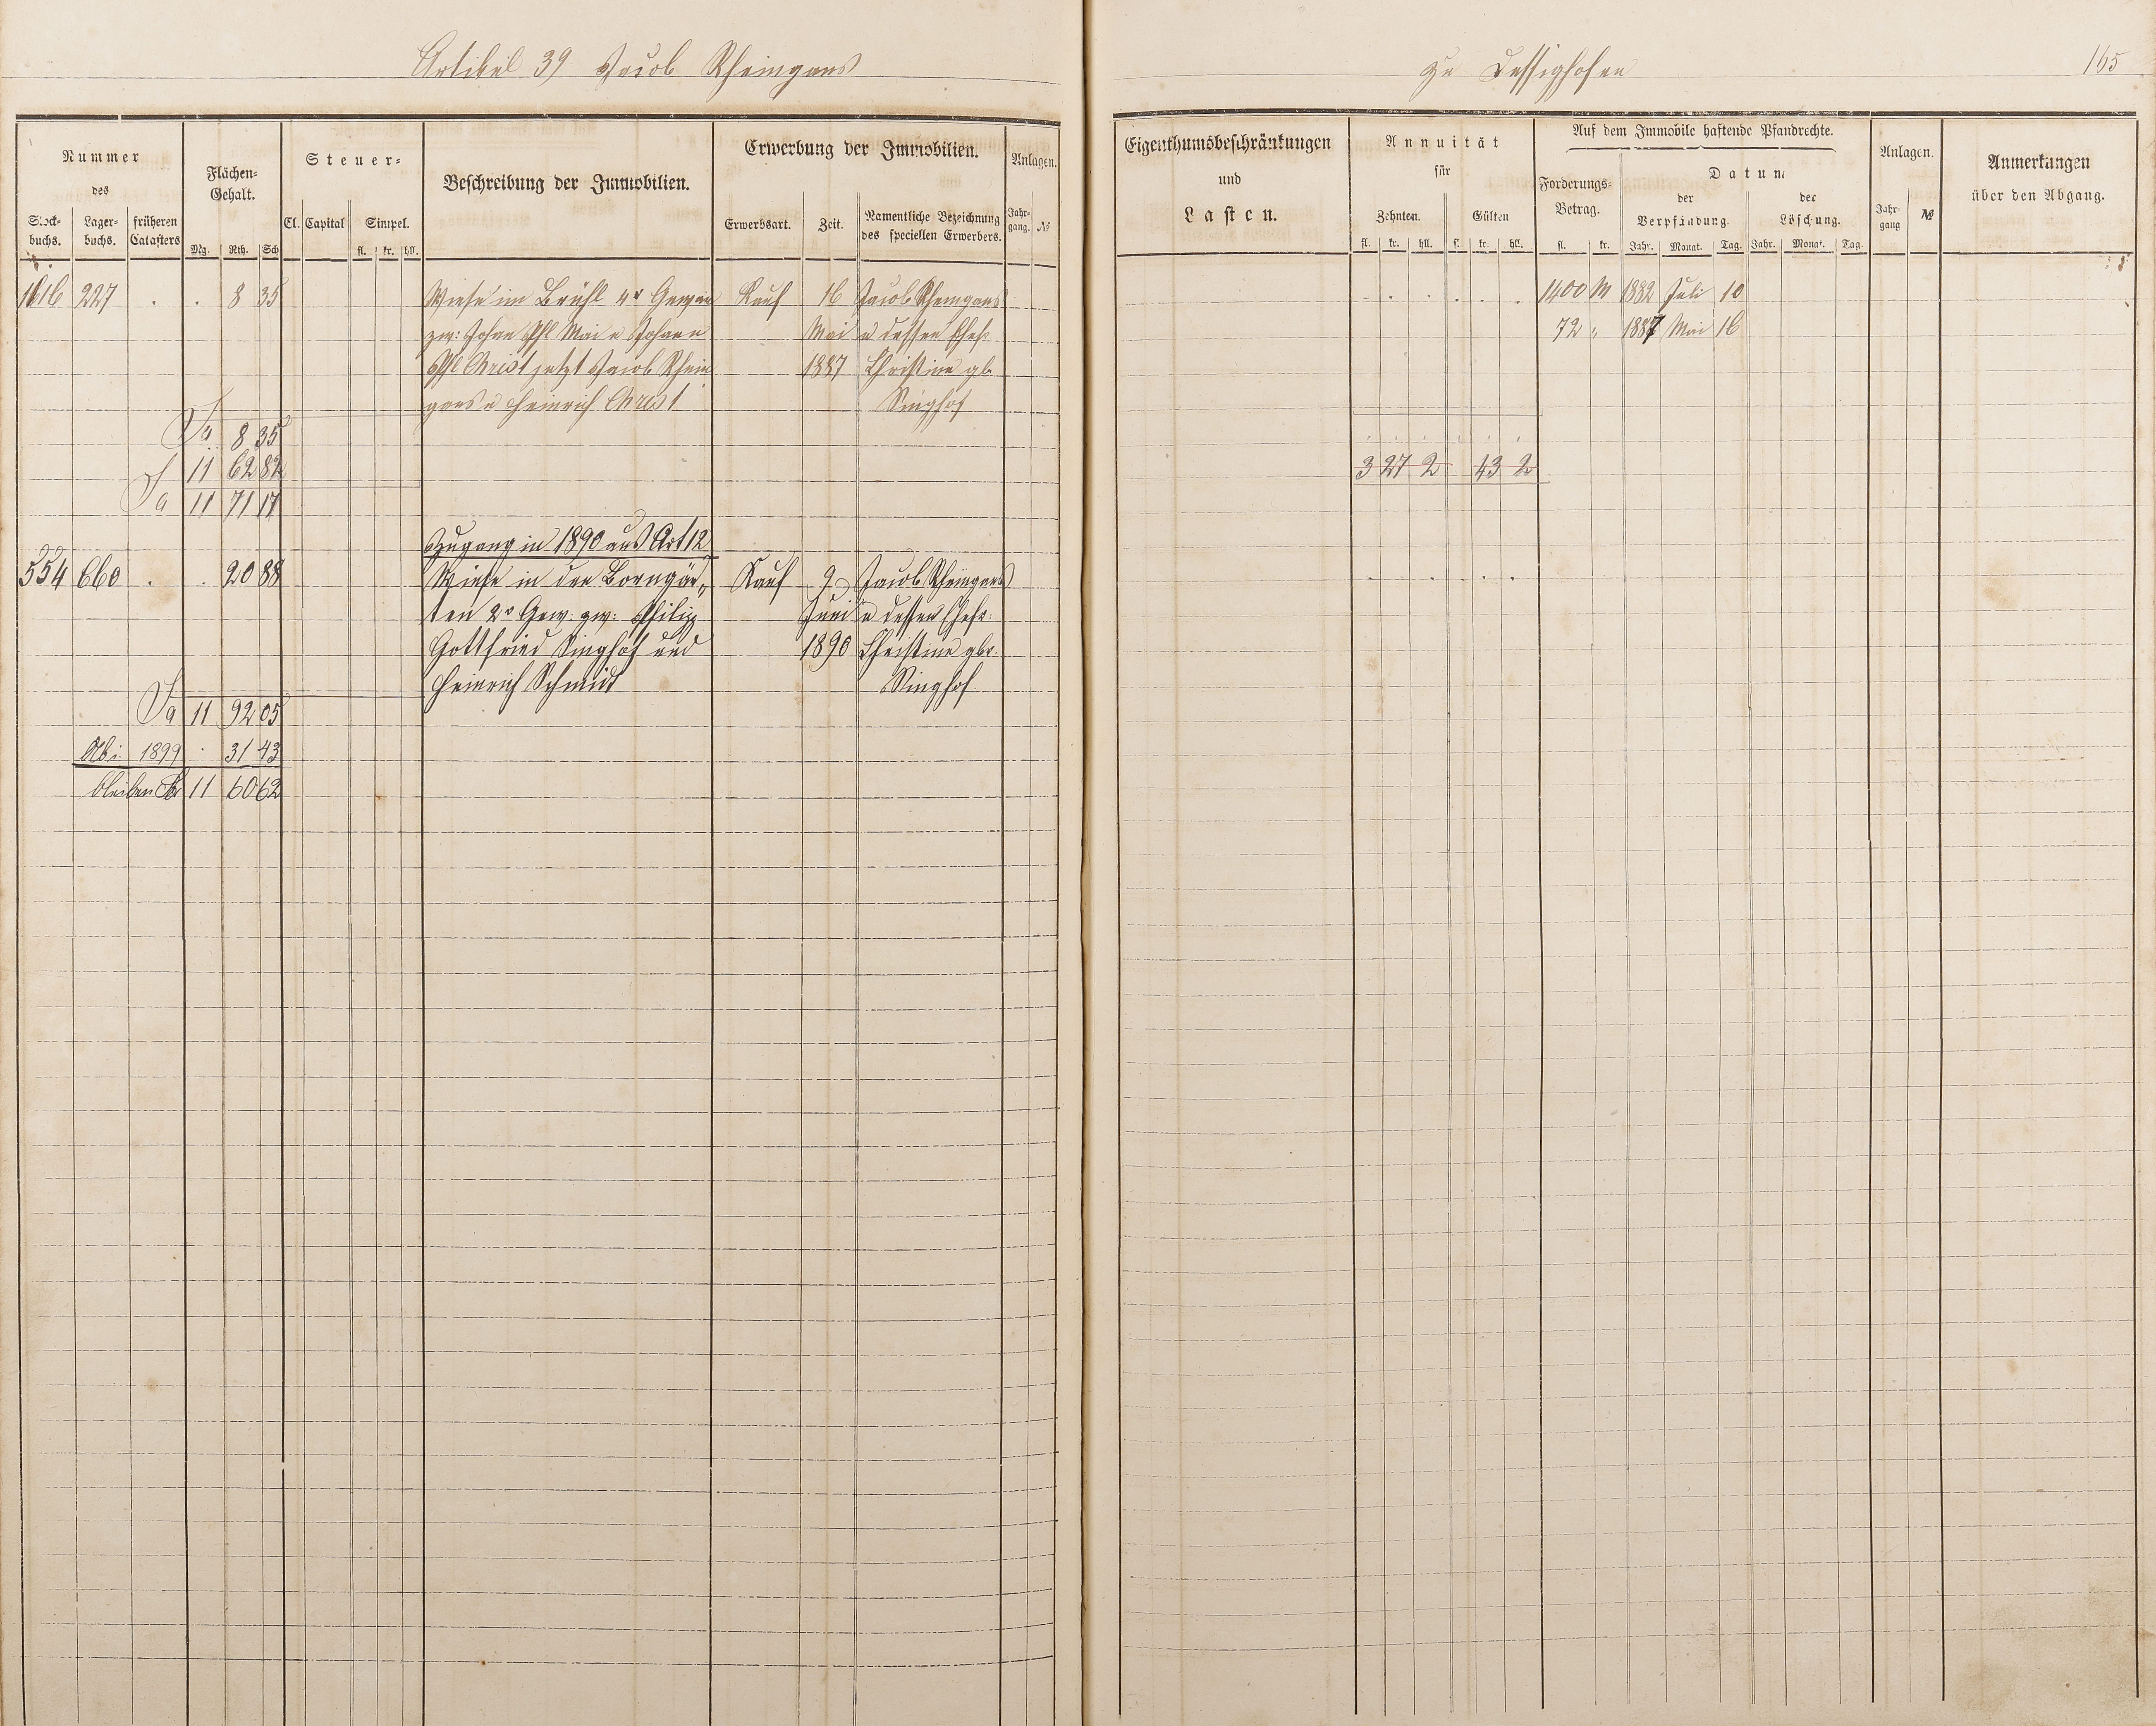 Artikel 39 Jacob Rheingans
zu Dessighofen
165
Nummer
des
Stock-
buchs.
Lager-
buchs.
früheren
Catasters
Flächen-
Gehalt.
Mg.
Rth.
Sch
Steuer-
Cl.
Capital
Simpel.
fl.
kr.
hll.
Beschreibung der Immobilien.
Erwerbung der Immobilien.
Erwerbsart.
Zeit.
Namentliche Bezeichnung
des speciellen Erwerbers.
Anlagen.
Jahr-
gang.
№
Eigenthumsbeschränkungen
und
Lasten.
Annuität
für
Zehnten.
fl. kr. hll.
Gülten
fl. kr. hll.
Auf dem Immobile haftende Pfandrechte.
Forderungs-
Betrag.
fl. kr.
Datum
der
Verpfändung.
Jahr. Monat. Tag.
der
Löschung.
Jahr. Monat. Tag.
Anlagen.
Jahr-
gang
№
Anmerkungen
über den Abgang.
1616 227 . . 8 35 Wiese im Brühl 4r Gewan Kauf 16 Jacob Rheingans 1400 M 1882 Juli 10
zw: Johan Phl Mai u Johann Mai u dessen Ehefr. 72 " 1887 Mai 16
Phl Christ jetzt Jacob Rhein 1887 Christine gb
gans u Heinrich Christ Singhof
Sa 8 35
11 62 82 3 27 2 43 2
Sa 11 71 17
Zugang in 1890 aus Art 12
554 660 . . 20 88 Wiese in den Borngär„ Kauf 9 Jacob Rheingans
ten 2r Gew: zw: Philipp Juni u dessen Ehefr.
Gottfried Singhof und 1890 Christine gbr.
Heinrich Schmidt Singhof
Sa 11 92 05
Ab: 1899 . 31 43
bleiben 11 60 62